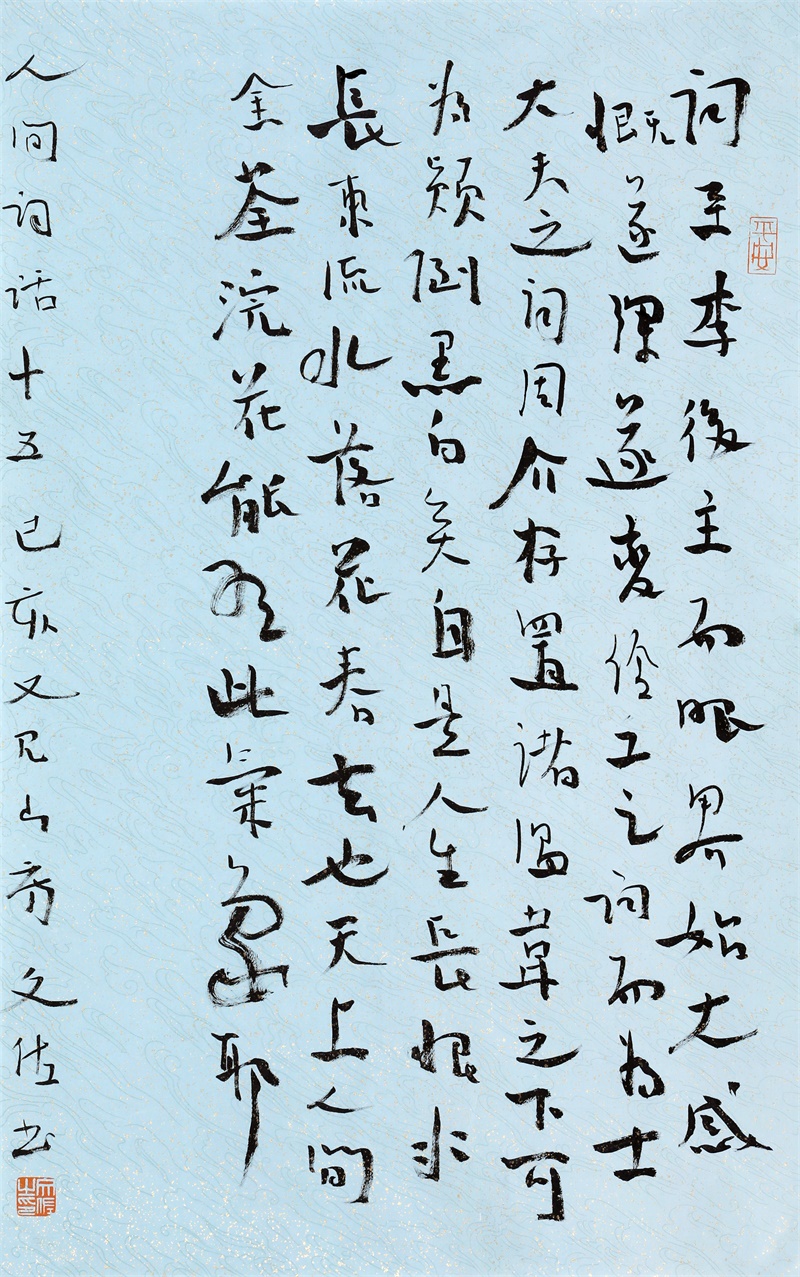 詞至李後主而眼界始大感
慨遂深遂變伶工之詞而為士
大夫之詞周介存置諸溫韋之下可
為顛倒黑白矣自是人生長恨水
長東流水落花春去也天上人間
金荃浣花能有此氣象耶
人間詞話十五己亥又見山房文佐書
平安